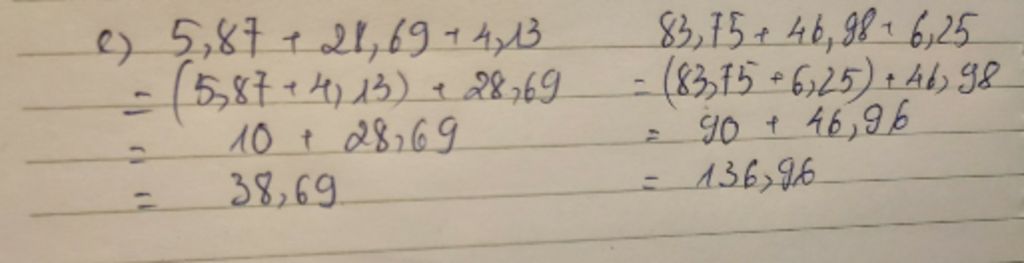 c) 5,87 + 28,69 + 4,13
= (5,87 + 4,13) + 28,69
= 10 + 28,69
= 38,69
83,75 + 46,98 + 6,25
= (83,75 + 6,25) + 46,98
= 90 + 46,96
= 136,96